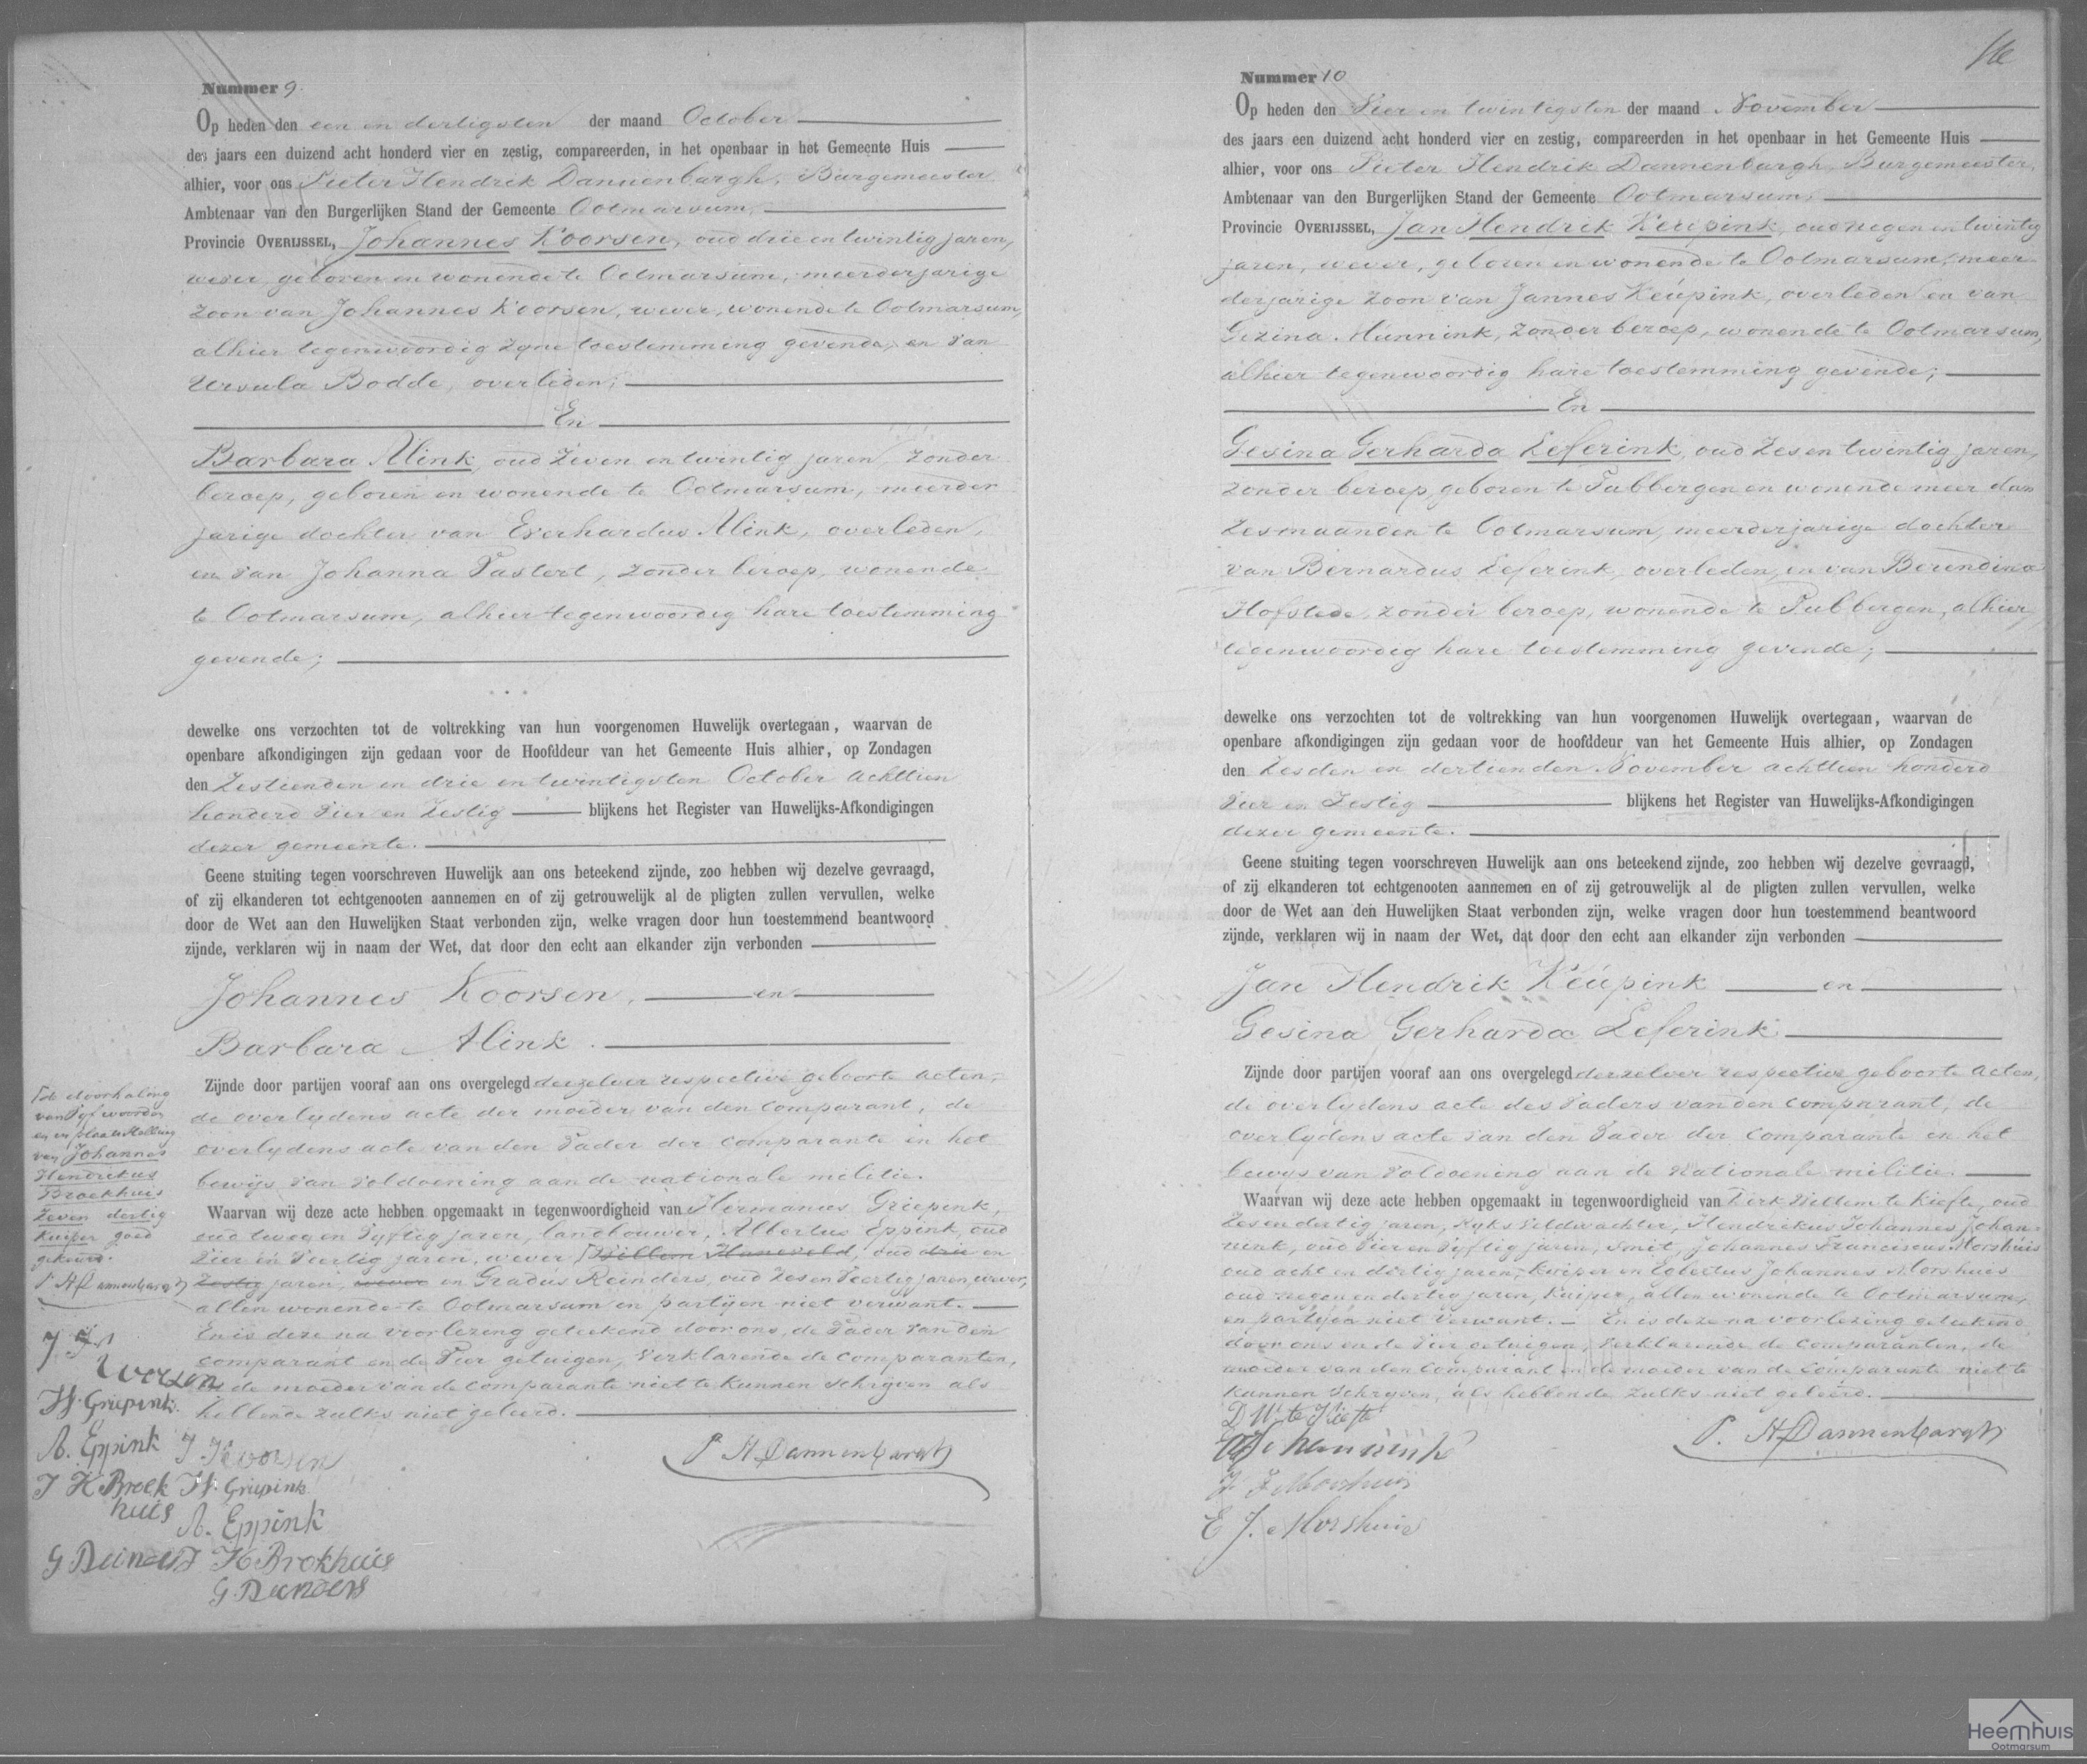 Nummer 9.
Op heden den een en dertigsten der maand October
des jaars een duizend acht honderd vier en zestig, compareerden, in het openbaar in het Gemeente Huis
alhier, voor ons Pieter Hendrik Dannenbargh, Burgemeester
Ambtenaar van den Burgerlijken Stand der Gemeente Ootmarsum,
Provincie OVERIJSSEL, Johannes Koorsen, oud drie en twintig jaren,
wever, geboren en wonende te Ootmarsum, meerderjarige
zoon van Johannes Koorsen, wever, wonende te Ootmarsum,
alhier tegenwoordig zyne toestemming gevende, en van
Ursula Bodde, overleden;
En
Barbara Alink, oud zeven en twintig jaren, zonder
beroep, geboren en wonende te Ootmarsum, meerder
jarige dochter van Everhardus Alink, overleden,
en van Johanna Tastert, zonder beroep, wonende
te Ootmarsum, alhier tegenwoordig hare toestemming
gevende;
dewelke ons verzochten tot de voltrekking van hun voorgenomen Huwelijk overtegaan, waarvan de
openbare afkondigingen zijn gedaan voor de Hoofddeur van het Gemeente Huis alhier, op Zondagen
den Zestienden en drie en twintigsten October achttien
honderd Vier en Zestig blijkens het Register van Huwelijks-Afkondigingen
dezer gemeente.
Geene stuiting tegen voorschreven Huwelijk aan ons beteekend zijnde, zoo hebben wij dezelve gevraagd,
of zij elkanderen tot echtgenooten aannemen en of zij getrouwelijk al de pligten zullen vervullen, welke
door de Wet aan den Huwelijken Staat verbonden zijn, welke vragen door hun toestemmend beantwoord
zijnde, verklaren wij in naam der Wet, dat door den echt aan elkander zijn verbonden
Johannes Koorsen, en
Barbara Alink.
Zijnde door partijen vooraf aan ons overgelegd derzelver respective geboorte acten,
de overlydens acte der moeder van den comparant, de
overlydens acte van den Vader der comparante en het
bewijs van Voldoening aan de nationale militie.
Waarvan wij deze acte hebben opgemaakt in tegenwoordigheid van Hermanus Griepink,
oud twee en Vyftig jaren, landbouwer, Albertus Eppink, oud
Vier en Veertig jaren, wever, Willem Haneveld, oud drie en
Zestig jaren, wever en Gradus Reinders, oud Zes en Veertig jaren, wever,
allen wonende te Ootmarsum en partijen niet verwant.
En is deze na voorlezing geteekend door ons, de Vader van den
comparant en de Vier getuigen, verklarende de comparanten,
en de moeder van de comparante niet te kunnen schrijven als
hebbende zulks niet geleerd.
de doorhaling
van Vyf woorden
en er plaats stelling
van Johannes
Hendrikus
Broekhuis
Zeven dertig
Kuiper goed
gekeurd.
P H Dannenbargh
H. Griepink
A. Eppink
J H Broek
huis
J. Koorsen
H. Griepink
A. Eppink
J H Brokhuis
G. Reinders
P. H Dannenbargh
Nummer 10
Op heden den Vier en twintigsten der maand November
des jaars een duizend acht honderd vier en zestig, compareerden in het openbaar in het Gemeente Huis
alhier, voor ons Pieter Hendrik Dannenbargh, Burgemeester,
Ambtenaar van den Burgerlijken Stand der Gemeente Ootmarsum,
Provincie OVERIJSSEL, Jan Hendrik Keúpink, oud negen en twintig
jaren, wever, geboren en wonende te Ootmarsum, meer
derjarige zoon van Jannes Keúpink, overleden en van
Gezina Mannink, zonder beroep, wonende te Ootmarsum,
alhier tegenwoordig hare toestemming gevende;
En
Gesina Gerharda Leferink, oud Zes en twintig jaren,
zonder beroep, geboren te Tubbergen en wonende meer dan
zes maanden te Ootmarsum, meerderjarige dochter
van Bernardus Leferink, overleden, en van Berendina
Hofstede, zonder beroep, wonende te Tubbergen, alhier
tegenwoordig hare toestemming gevende;
dewelke ons verzochten tot de voltrekking van hun voorgenomen Huwelijk overtegaan, waarvan de
openbare afkondigingen zijn gedaan voor de hoofddeur van het Gemeente Huis alhier, op Zondagen
den Zesden en dertienden November achttien honderd
Vier en Zestig blijkens het Register van Huwelijks-Afkondigingen
dezer gemeente.
Geene stuiting tegen voorschreven Huwelijk aan ons beteekend zijnde, zoo hebben wij dezelve gevraagd,
of zij elkanderen tot echtgenooten aannemen en of zij getrouwelijk al de pligten zullen vervullen, welke
door de Wet aan den Huwelijken Staat verbonden zijn, welke vragen door hun toestemmend beantwoord
zijnde, verklaren wij in naam der Wet, dat door den echt aan elkander zijn verbonden
Jan Hendrik Keúpink en
Gesina Gerharda Leferink.
Zijnde door partijen vooraf aan ons overgelegd derzelver respective geboorte acten,
de overlydens acte des Vaders van den comparant, de
overlydens acte van den Vader der comparante en het
bewys van Voldoening aan de Nationale militie.
Waarvan wij deze acte hebben opgemaakt in tegenwoordigheid van Dirk Willem te Kiefte, oud
Zes en dertig jaren, Ryks Veldwachter, Hendrikus Johannes Johan-
nink, oud Vier en Vyftig jaren, smit, Johannes Franciscus Morshuis
oud acht en dertig jaren, kuiper en Egbertus Johannes Morshuis
oud negen en dertig jaren, kuiper, allen wonende te Ootmarsum,
en partyen niet verwant. En is deze na voorlezing geteekend
door ons en de Vier getuigen, verklarende de comparanten, de
moeder van den comparant en de moeder van de comparante niet te
kunnen schryven, als hebbende zulks niet geleerd.
D W te Kiefte
E J. Morshuis
P. H Dannenbargh
Heemhuis
Ootmarsum